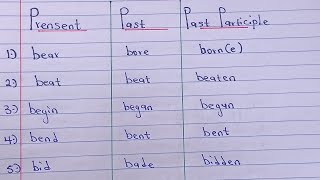 Prensent Past Past Participle
1:) bear bore born(e)
2:) beat beat beaten
3:) begin began begun
4:) bend bent bent
5:) bid bade bidden